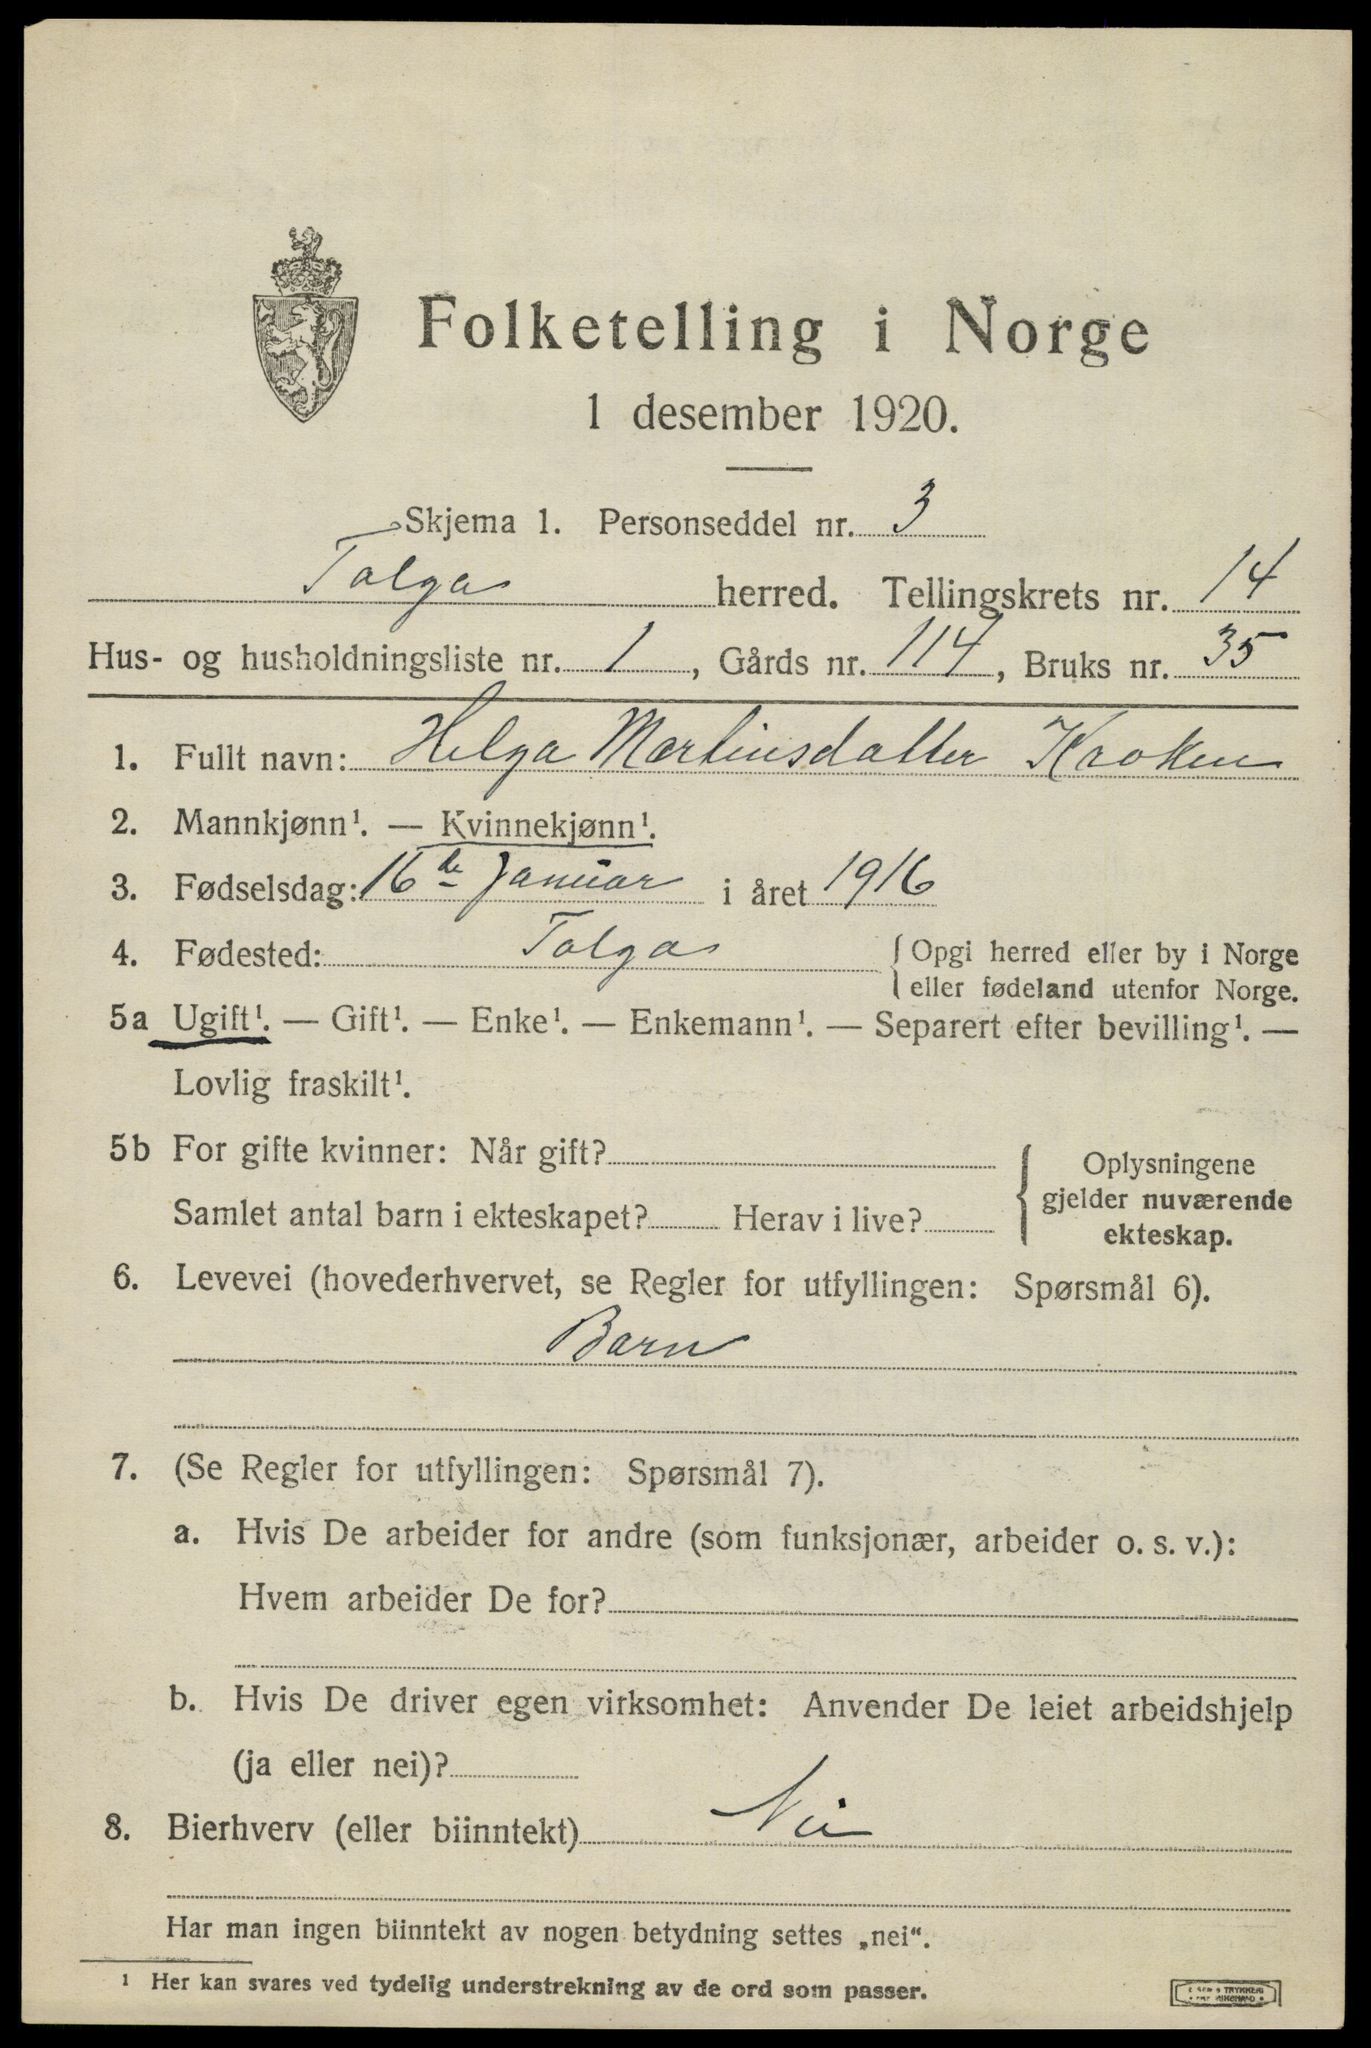 Folketelling i Norge
1 desember 1920.
Skjema 1. Personseddel nr. 3
Tolga herred. Tellingskrets nr. 14
Hus- og husholdningsliste nr. 1, Gårds nr. 114, Bruks nr. 35
1. Fullt navn: Helga Martinsdatter Kroken
2. Mannkjønn¹. — Kvinnekjønn¹.
3. Fødselsdag: 16de Januar i året 1916
4. Fødested: Tolga { Opgi herred eller by i Norge
eller fødeland utenfor Norge.
5a Ugift¹. — Gift¹. — Enke¹. — Enkemann¹. — Separert efter bevilling¹. —
Lovlig fraskilt¹.
5b For gifte kvinner: Når gift?
Samlet antal barn i ekteskapet? Herav i live?
{ Oplysningene
gjelder nuværende
ekteskap.
6. Levevei (hovederhvervet, se Regler for utfyllingen: Spørsmål 6).
Barn
7. (Se Regler for utfyllingen: Spørsmål 7).
a. Hvis De arbeider for andre (som funksjonær, arbeider o. s. v.):
Hvem arbeider De for?
b. Hvis De driver egen virksomhet: Anvender De leiet arbeidshjelp
(ja eller nei)?
8. Bierhverv (eller biinntekt) Nei
Har man ingen biinntekt av nogen betydning settes „nei“.
¹ Her kan svares ved tydelig understrekning av de ord som passer.